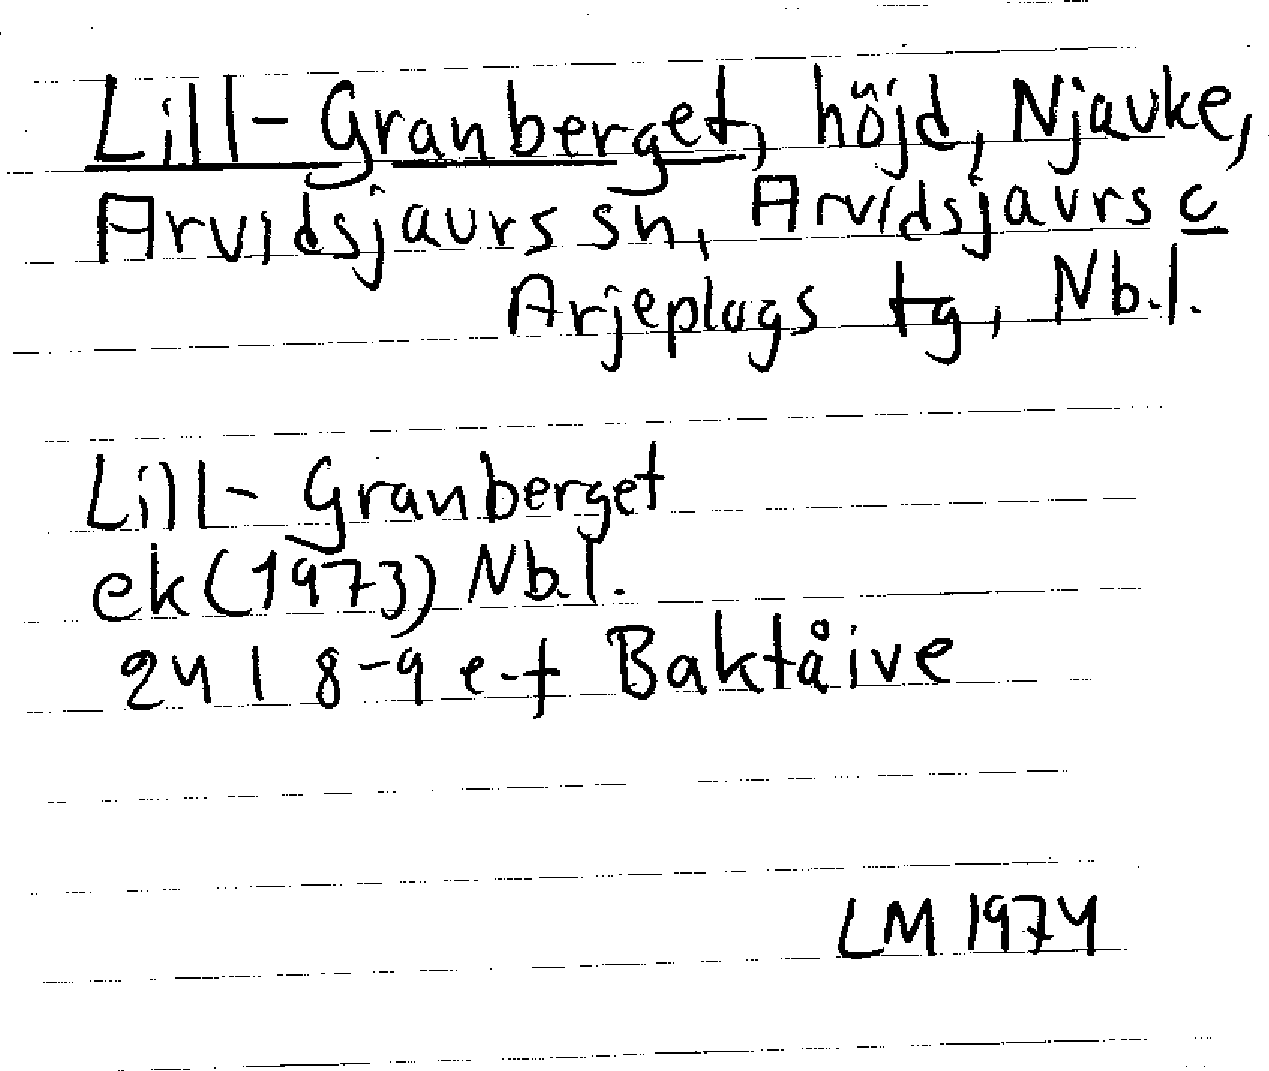 Lill-Granberget, höjd, Njavke,
Arvidsjaurs sn, Arvidsjaurs c
Arjeplogs tg, Nb.l.
Lill-Granberget
ek(1973) Nb.l.
24 I 8-9 e-f Baktåive
LM 1974